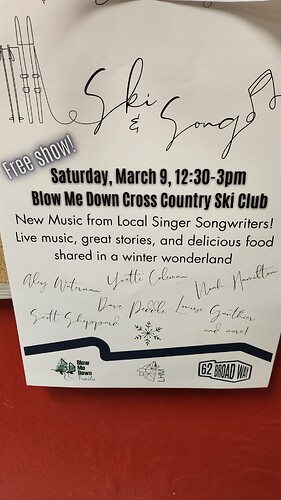 Ski
&
Song
Free show!
Saturday, March 9, 12:30-3pm
Blow Me Down Cross Country Ski Club
New Music from Local Singer Songwriters!
Live music, great stories, and delicious food
shared in a winter wonderland
Yvette Coleman
Noah Hamilton
Dave Peddle
Louise Gauthier
Scott Sheppard
and more!
Blow
Me
Down
Trails
62 BROADWAY